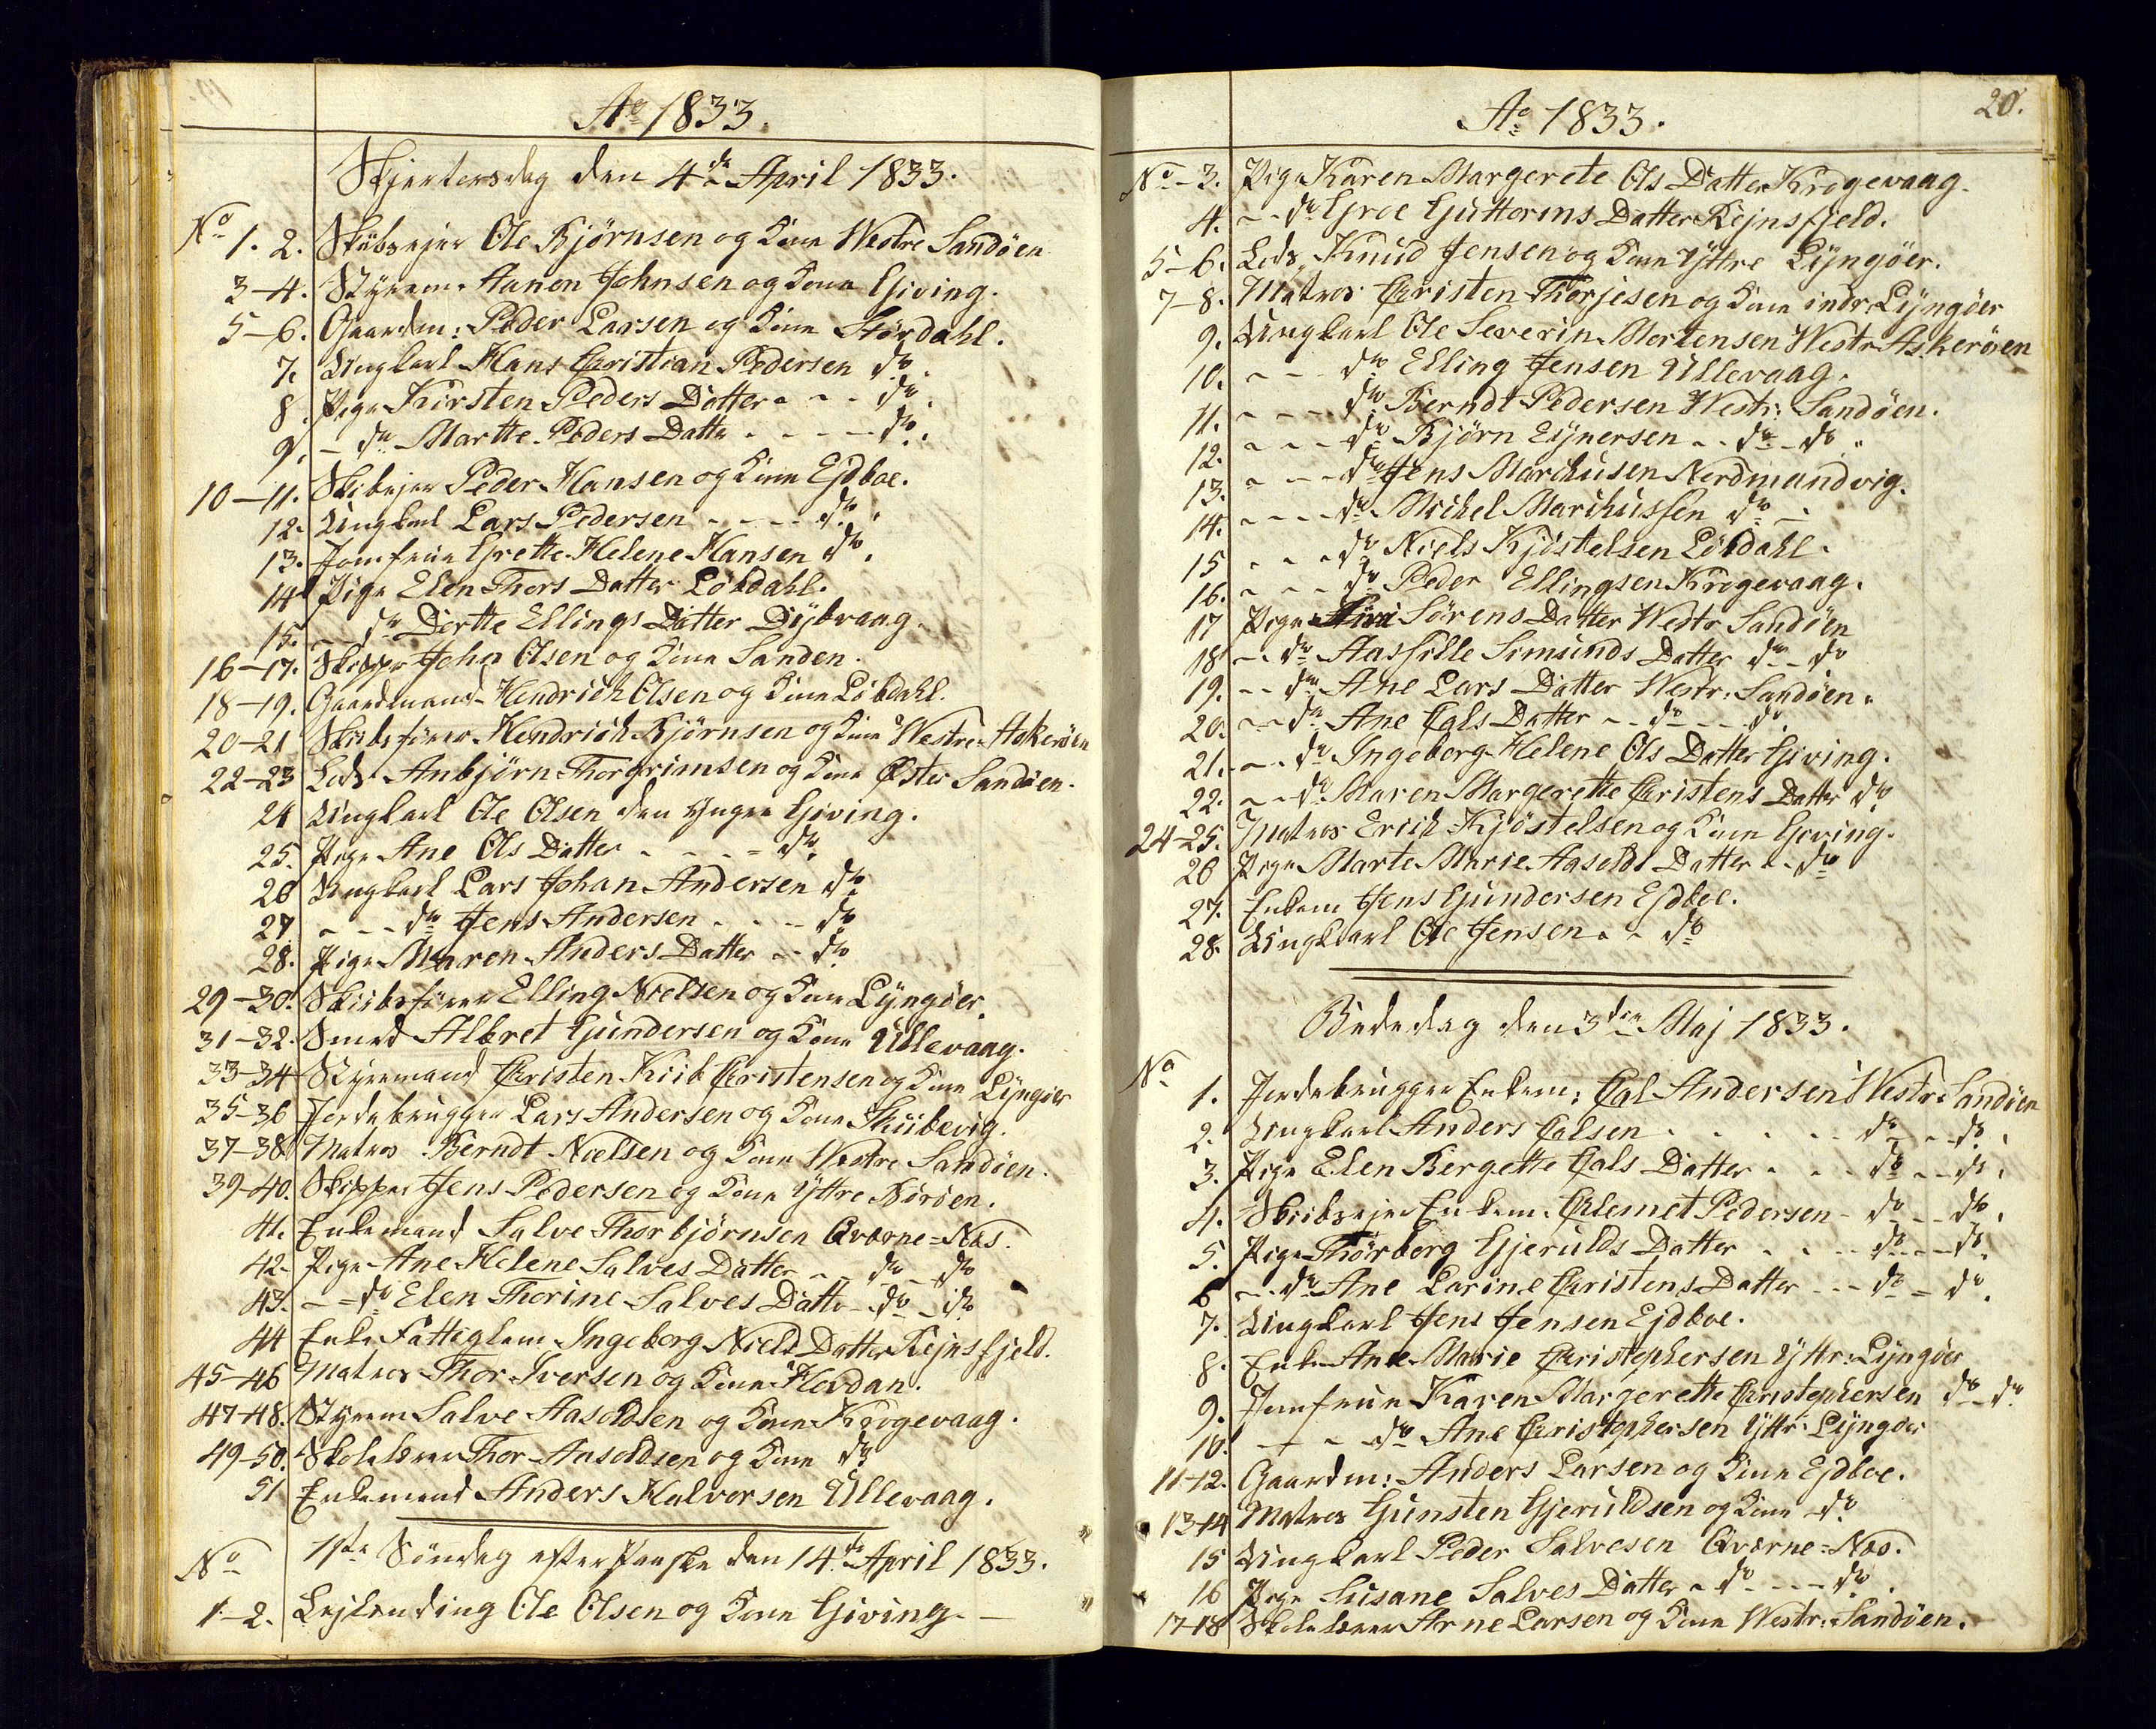 Ao 1833.
Skjertorsdag den 4de April 1833.
No 1. 2. Skibsejer Ole Bjørnsen og Kone Westre Sandöen
3-4. Styrem. Aanon Johnsen og Kone Giving.
5-6. Gaardm: Peder Larsen og Kone Stördahl.
7. Ungkarl Hans Christian Pedersen do.
8. Pige Kirsten Peders Datter - - - do.
9. - do Marthe Peders Datter - - - - do.
10-11. Skibsejer Peder Hansen og Kone Ejdboe.
12. Ungkarl Lars Pedersen - - - - do.
13. Jomfrue Grette Helene Hansen do.
14 Pige Elen Thors Datter Lökdahl.
15. - - do Dortte Ellings Datter Dÿbvaag.
16-17. Skipper John Olsen og Kone Sanden.
18-19. Gaardmand Hendrich Olsen og Kone Lökdahl.
20-21 Skibsfører Hendrich Bjørnsen og Kone Westre Askeröen
22-23 Lods Anbjörn Thorgrimsen og Kone Øster Sandöen.
24 Ungkarl Ole Olsen den Yngre Giving.
25. Pige Ane Ols Datter - - - - do.
26 Ungkarl Lars Johan Andersen do.
27. - - - do Jens Andersen - - - do
28. Pige Maren Anders Datter - - do.
29-30. Skibsfører Elling Nielsen og Kone Lÿngöer.
31-32. Smed Albret Gundersen og Kone Ullevaag.
33-34 Styrmand Christen Kiib Christensen og Kone Lÿngöer
35-36 Jordebrugger Lars Andersen og Kone Skiibevig.
37-38 Matros Berndt Nielsen og Kone Westre Sandöen.
39-40. Skipper Jens Pedersen og Kone Yttre Böröen.
41. Enkemand Salve Thorbjörnsen Qværne=Næs.
42. Pige Ane Helene Salves Datter - - do - do
43. - - do Elen Thorine Salves Datter - do - do.
44 Enke Fattiglem Ingeborg Niels Datter Rejnsfjeld.
45-46 Matros Thor Iversen og Kone Hovdan.
47-48. Styrem Salve Aasoldsen og Kone Krogevaag.
49-50. Skolelærer Thor Aasoldsen og Kone do.
51 Enkemand Anders Halvorsen Ullevaag.
No 1ste Söndag efter Paaske den 14de April 1833.
1-2. Lejlending Ole Olsen og Kone Giving. -
20.
Ao 1833.
No-3. Pige Karen Margerete Ols Datter Krogevaag.
4. - - do Groe Guttorms Datter Rejnsfjeld.
5-6. Lods Knud Jensen og Kone Yttre Lÿngöer.
7-8. Matros Christen Thorjesen og Kone indr: Lÿngöer
9. Ungkarl Ole Severin Mortensen Westr: Askeröen
10. - - do Elling Jensen Ullevaag.
11. - - - do Berndt Pedersen Westr: Sandöen.
12. - - - do Bjørn Eÿnersen - - do - do.
13. - - - do Jens Marchusen Nordmandvig.
14. - - - - do Michel Marchussen do -
15 - - - do Niels Kjöstelsen Lökdahl.
16. - - - do Peder Ellingsen Krogevaag.
17 Pige Siri Sörens Datter Westr Sandöen
18 - - do Aassille Simunds Datter do - do
19. - - do Ane Lars Datter Westr: Sandöen.
20. - - do Ane Cals Datter - - do - - do
21. - - do Ingeborg Helene Ols Datter Giving.
22. - - do Maren Margerette Christens Datter do
24-25. Matros Erich Kjöstelsen og Kone Giving.
26 Pige Marte Marie Aasolds Datter - - do
27. Enkem Jens Gundersen Ejdboe.
28. Ungkarl Ole Jensen - - do
Bededag den 3die Maj 1833.
No
1. Jordebrugger Enkem: Cal Andersen Westr: Sandöen
2. Ungkarl Anders Calsen - - - - do - - do.
3. Pige Elen Bergette Cals Datter - - - do - - do.
4. Skibsejer Enkem. Clemet Pedersen - do - - do.
5. Pige Thorberg Gjerulds Datter - - - do - - do.
6 - - do Ane Larine Christens Datter - - - do - do.
7. Ungkarl Jens Jensen Ejdboe.
8. Enke Ane Marie Christophersen Yttr: Lÿngöer
9. Jomfrue Karen Margerette Christophersen do - do.
10. - - - do Ane Christophersen Yttr: Lÿngöer
11-12. Gaardm: Anders Larsen og Kone Ejdboe.
13-14 Matros Gunsten Gjeruldsen og Kone do.
15 Ungkarl Peder Salvesen Qværne=Næs.
16 Pige Susane Salves Datter - do - - - do.
17-18 Skolelærer Arne Larsen og Kone Westr: Sandöen.